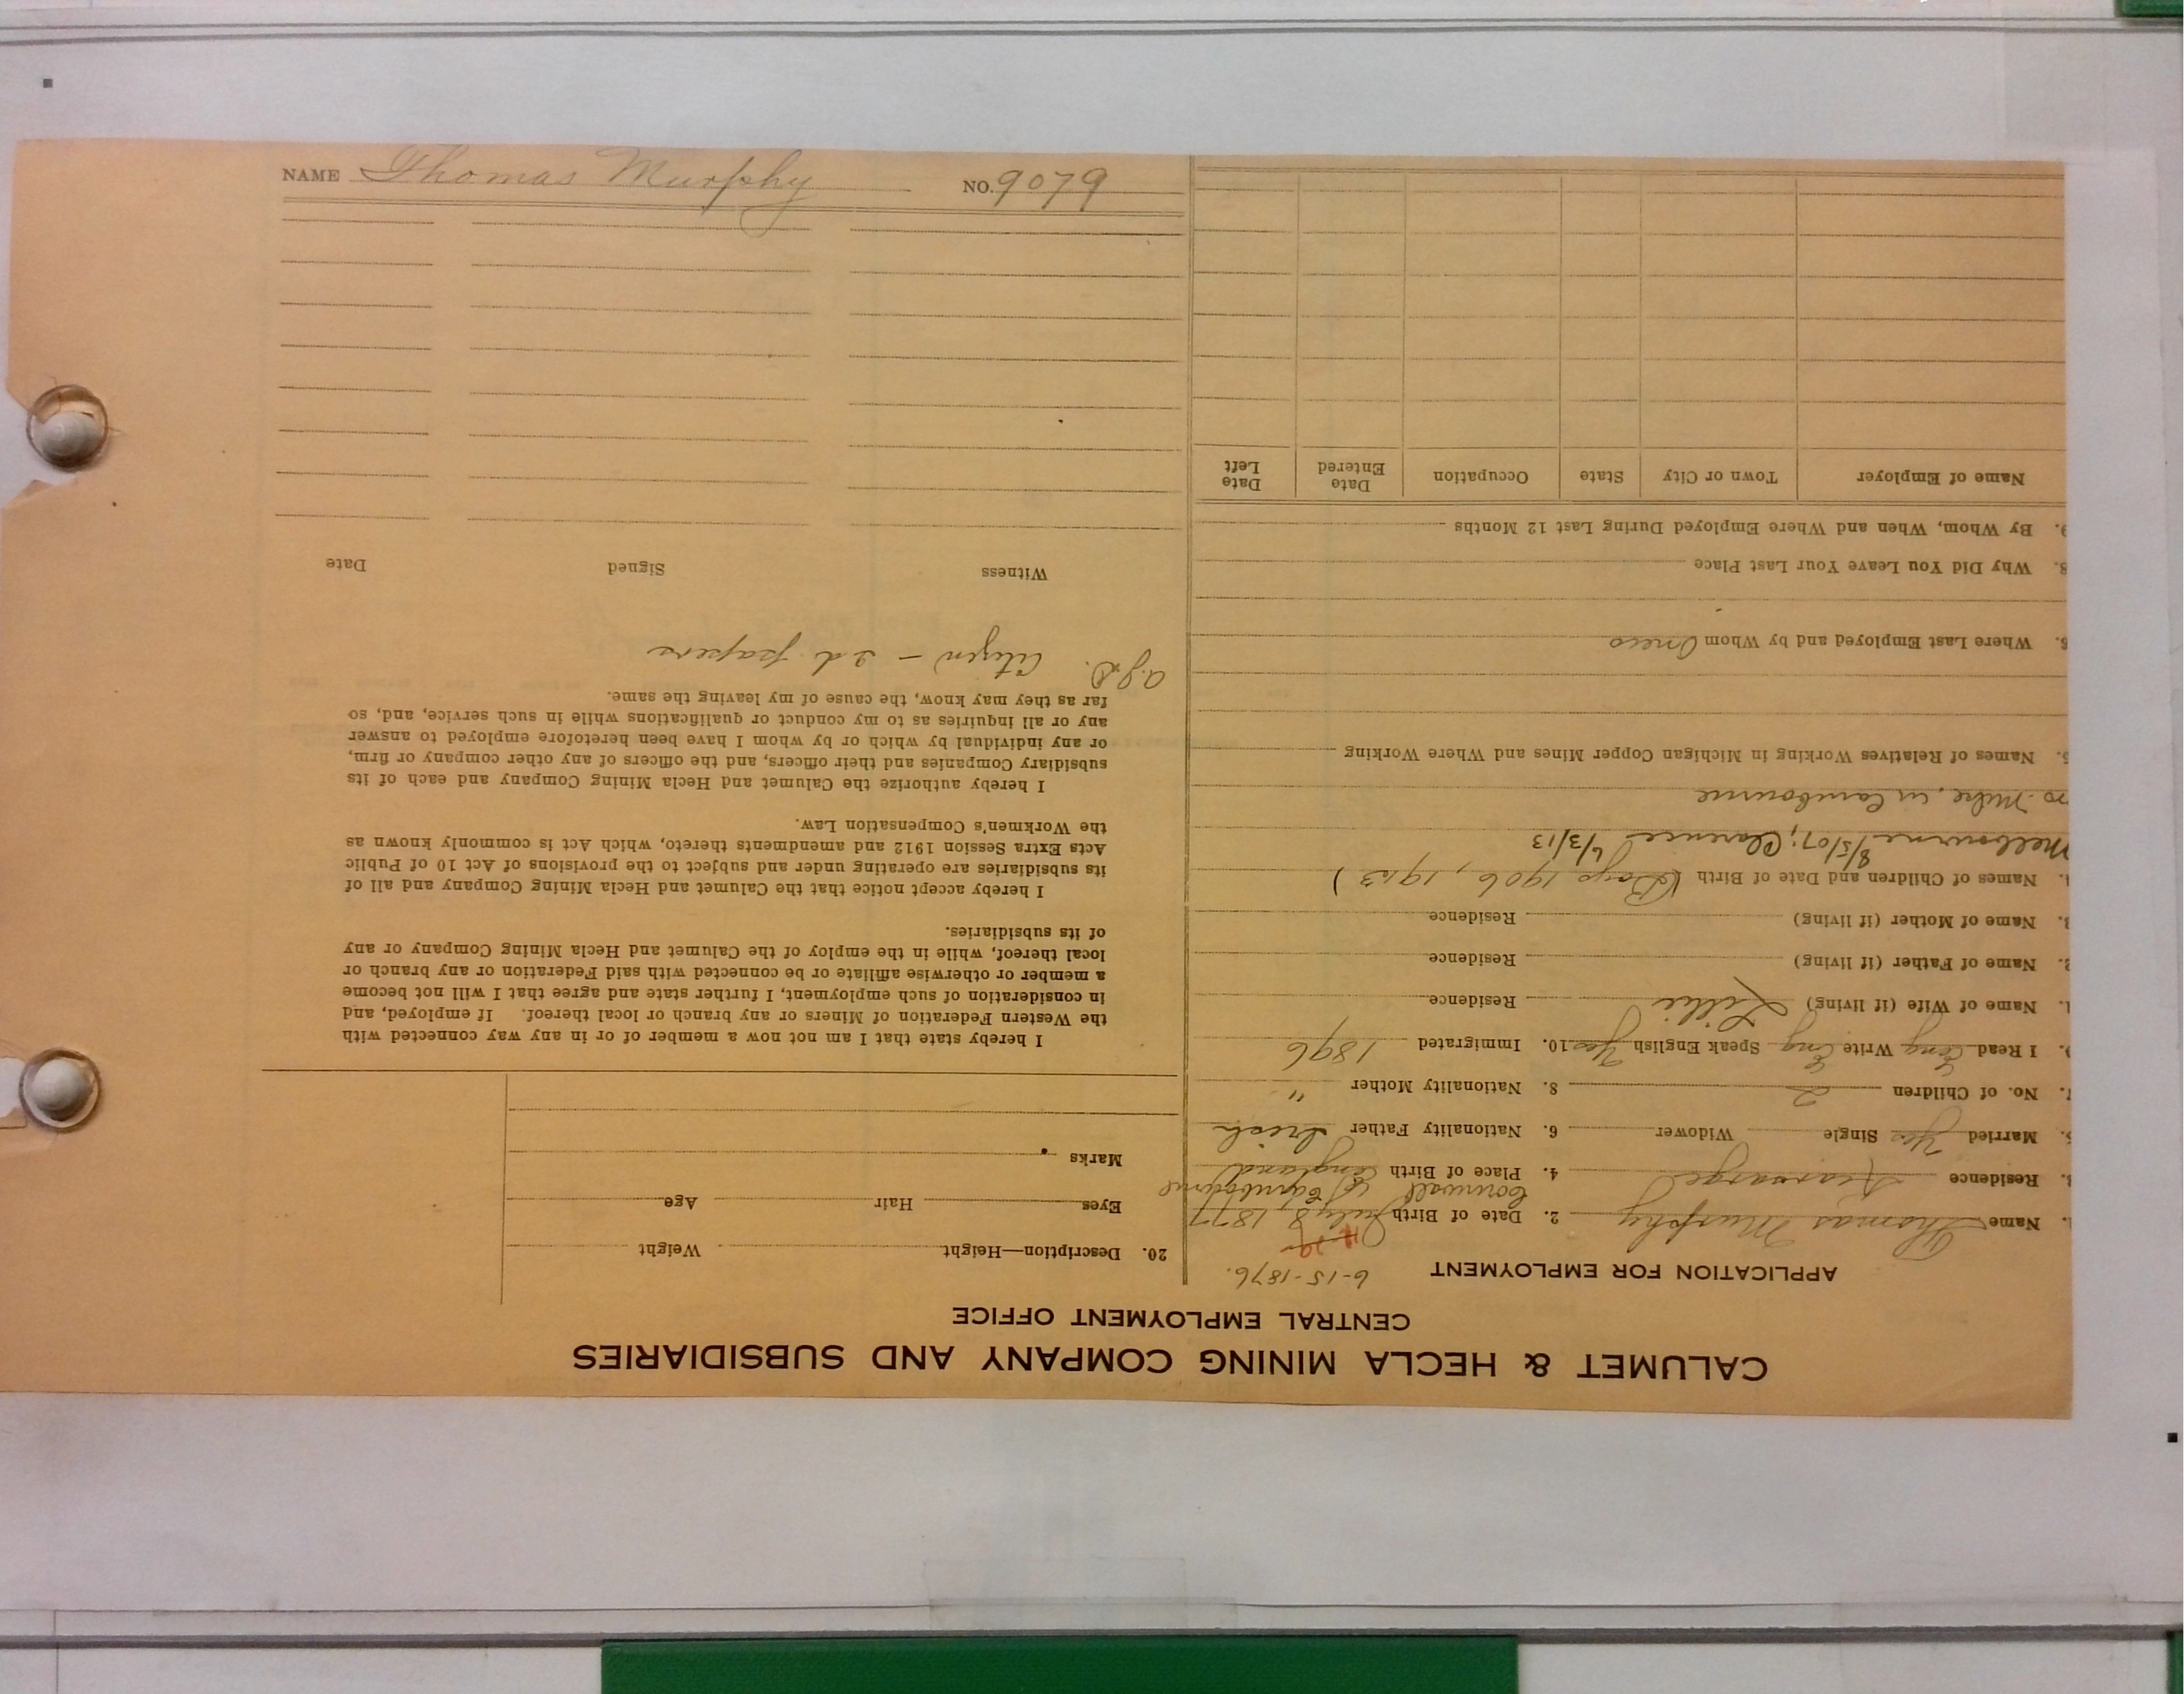 NAME Thomas Murphy NO. 9079
CALUMET & HECLA MINING COMPANY AND SUBSIDIARIES
CENTRAL EMPLOYMENT OFFICE
APPLICATION FOR EMPLOYMENT 6-15-1876.
1. Name Thomas Murphy 2. Date of Birth July 8, 1877
Cornwall
3. Residence Kearsarge 4. Place of Birth England
5. Married Yes Single Widower 6. Nationality Father Irish
7. No. of Children 2 8. Nationality Mother "
9. I Read Eng Write Eng Speak English Yes 10. Immigrated 1896
1. Name of Wife (if living) Lillie Residence
2. Name of Father (if living) Residence
3. Name of Mother (if living) Residence
4. Names of Children and Date of Birth (Boys 1906, 1913)
Melbourne 8/5/07; Clarence 6/3/13
in Cambourne
5. Names of Relatives Working in Michigan Copper Mines and Where Working
6. Where Last Employed and by Whom
8. Why Did You Leave Your Last Place
9. By Whom, When and Where Employed During Last 12 Months
Name of Employer Town or City State Occupation Date Entered Date Left
20. Description—Height Weight
Eyes Hair Age
Marks
I hereby state that I am not now a member of or in any way connected with
the Western Federation of Miners or any branch or local thereof. If employed, and
in consideration of such employment, I further state and agree that I will not become
a member or otherwise affiliate or be connected with said Federation or any branch or
local thereof, while in the employ of the Calumet and Hecla Mining Company or any
of its subsidiaries.
I hereby accept notice that the Calumet and Hecla Mining Company and all of
its subsidiaries are operating under and subject to the provisions of Act 10 of Public
Acts Extra Session 1912 and amendments thereto, which Act is commonly known as
the Workmen's Compensation Law.
I hereby authorize the Calumet and Hecla Mining Company and each of its
subsidiary Companies and their officers, and the officers of any other company or firm,
or any individual by which or by whom I have been heretofore employed to answer
any or all inquiries as to my conduct or qualifications while in such service, and, so
far as they may know, the cause of my leaving the same.
Citizen - 2d papers
Witness Signed Date